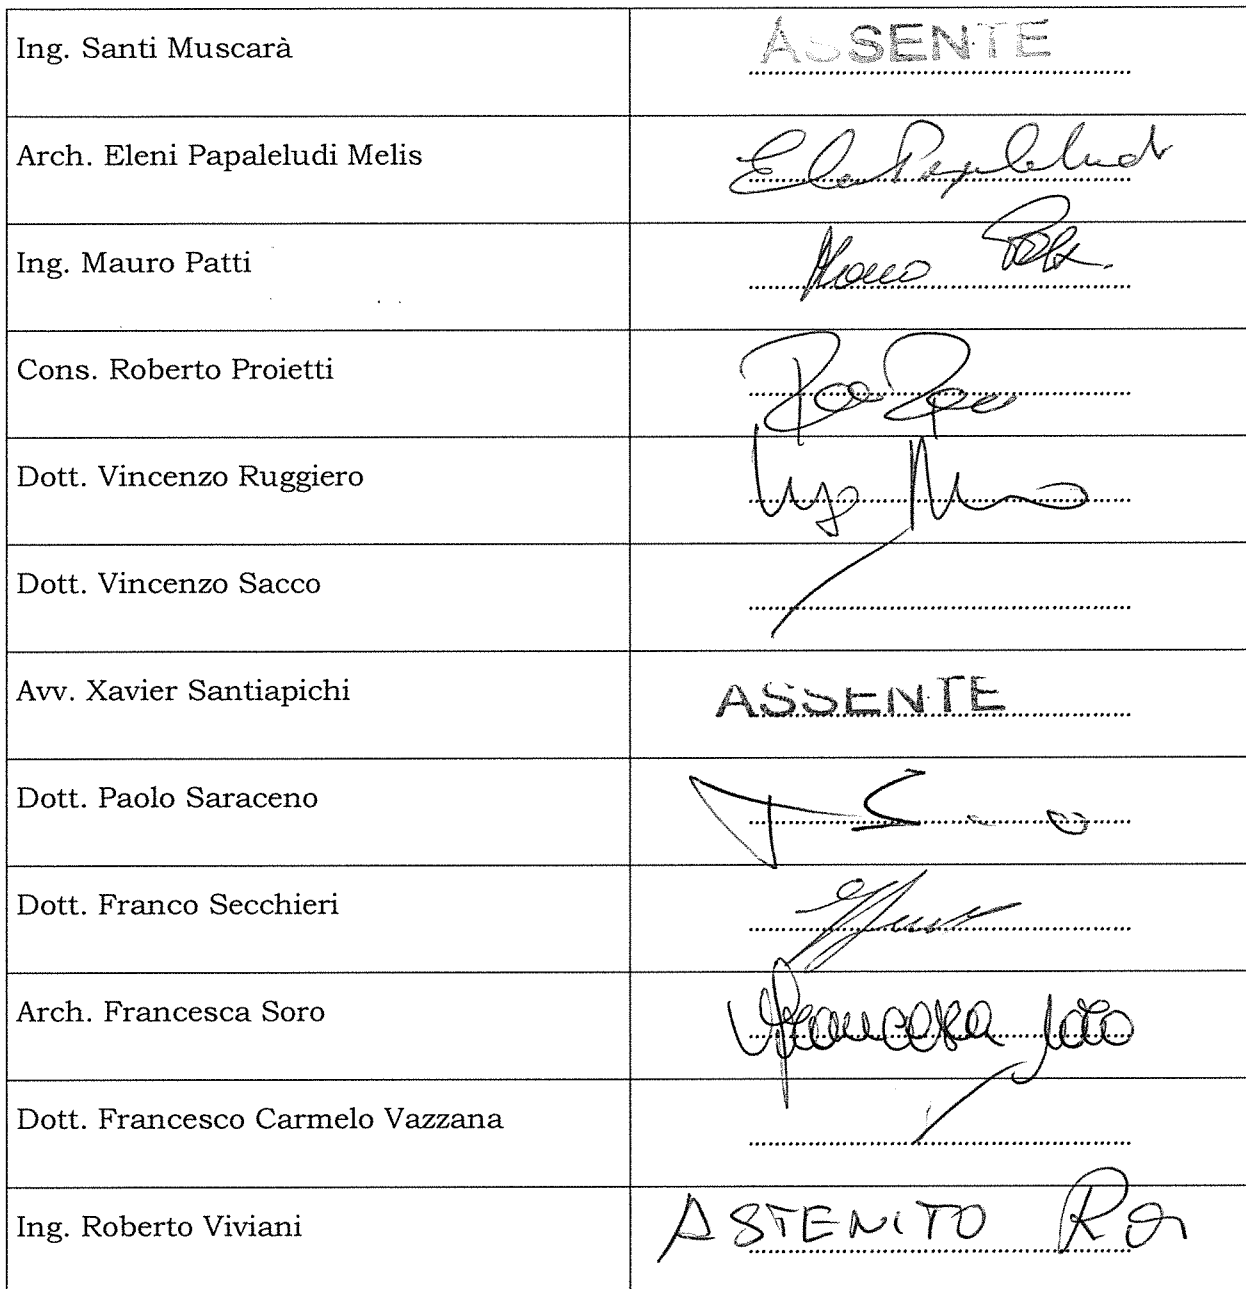 Ing. Santi Muscarà ASSENTE
Arch. Eleni Papaleludi Melis
Ing. Mauro Patti
Cons. Roberto Proietti
Dott. Vincenzo Ruggiero
Dott. Vincenzo Sacco
Avv. Xavier Santiapichi ASSENTE
Dott. Paolo Saraceno
Dott. Franco Secchieri
Arch. Francesca Soro Francesca Soro
Dott. Francesco Carmelo Vazzana
Ing. Roberto Viviani ASTENUTO